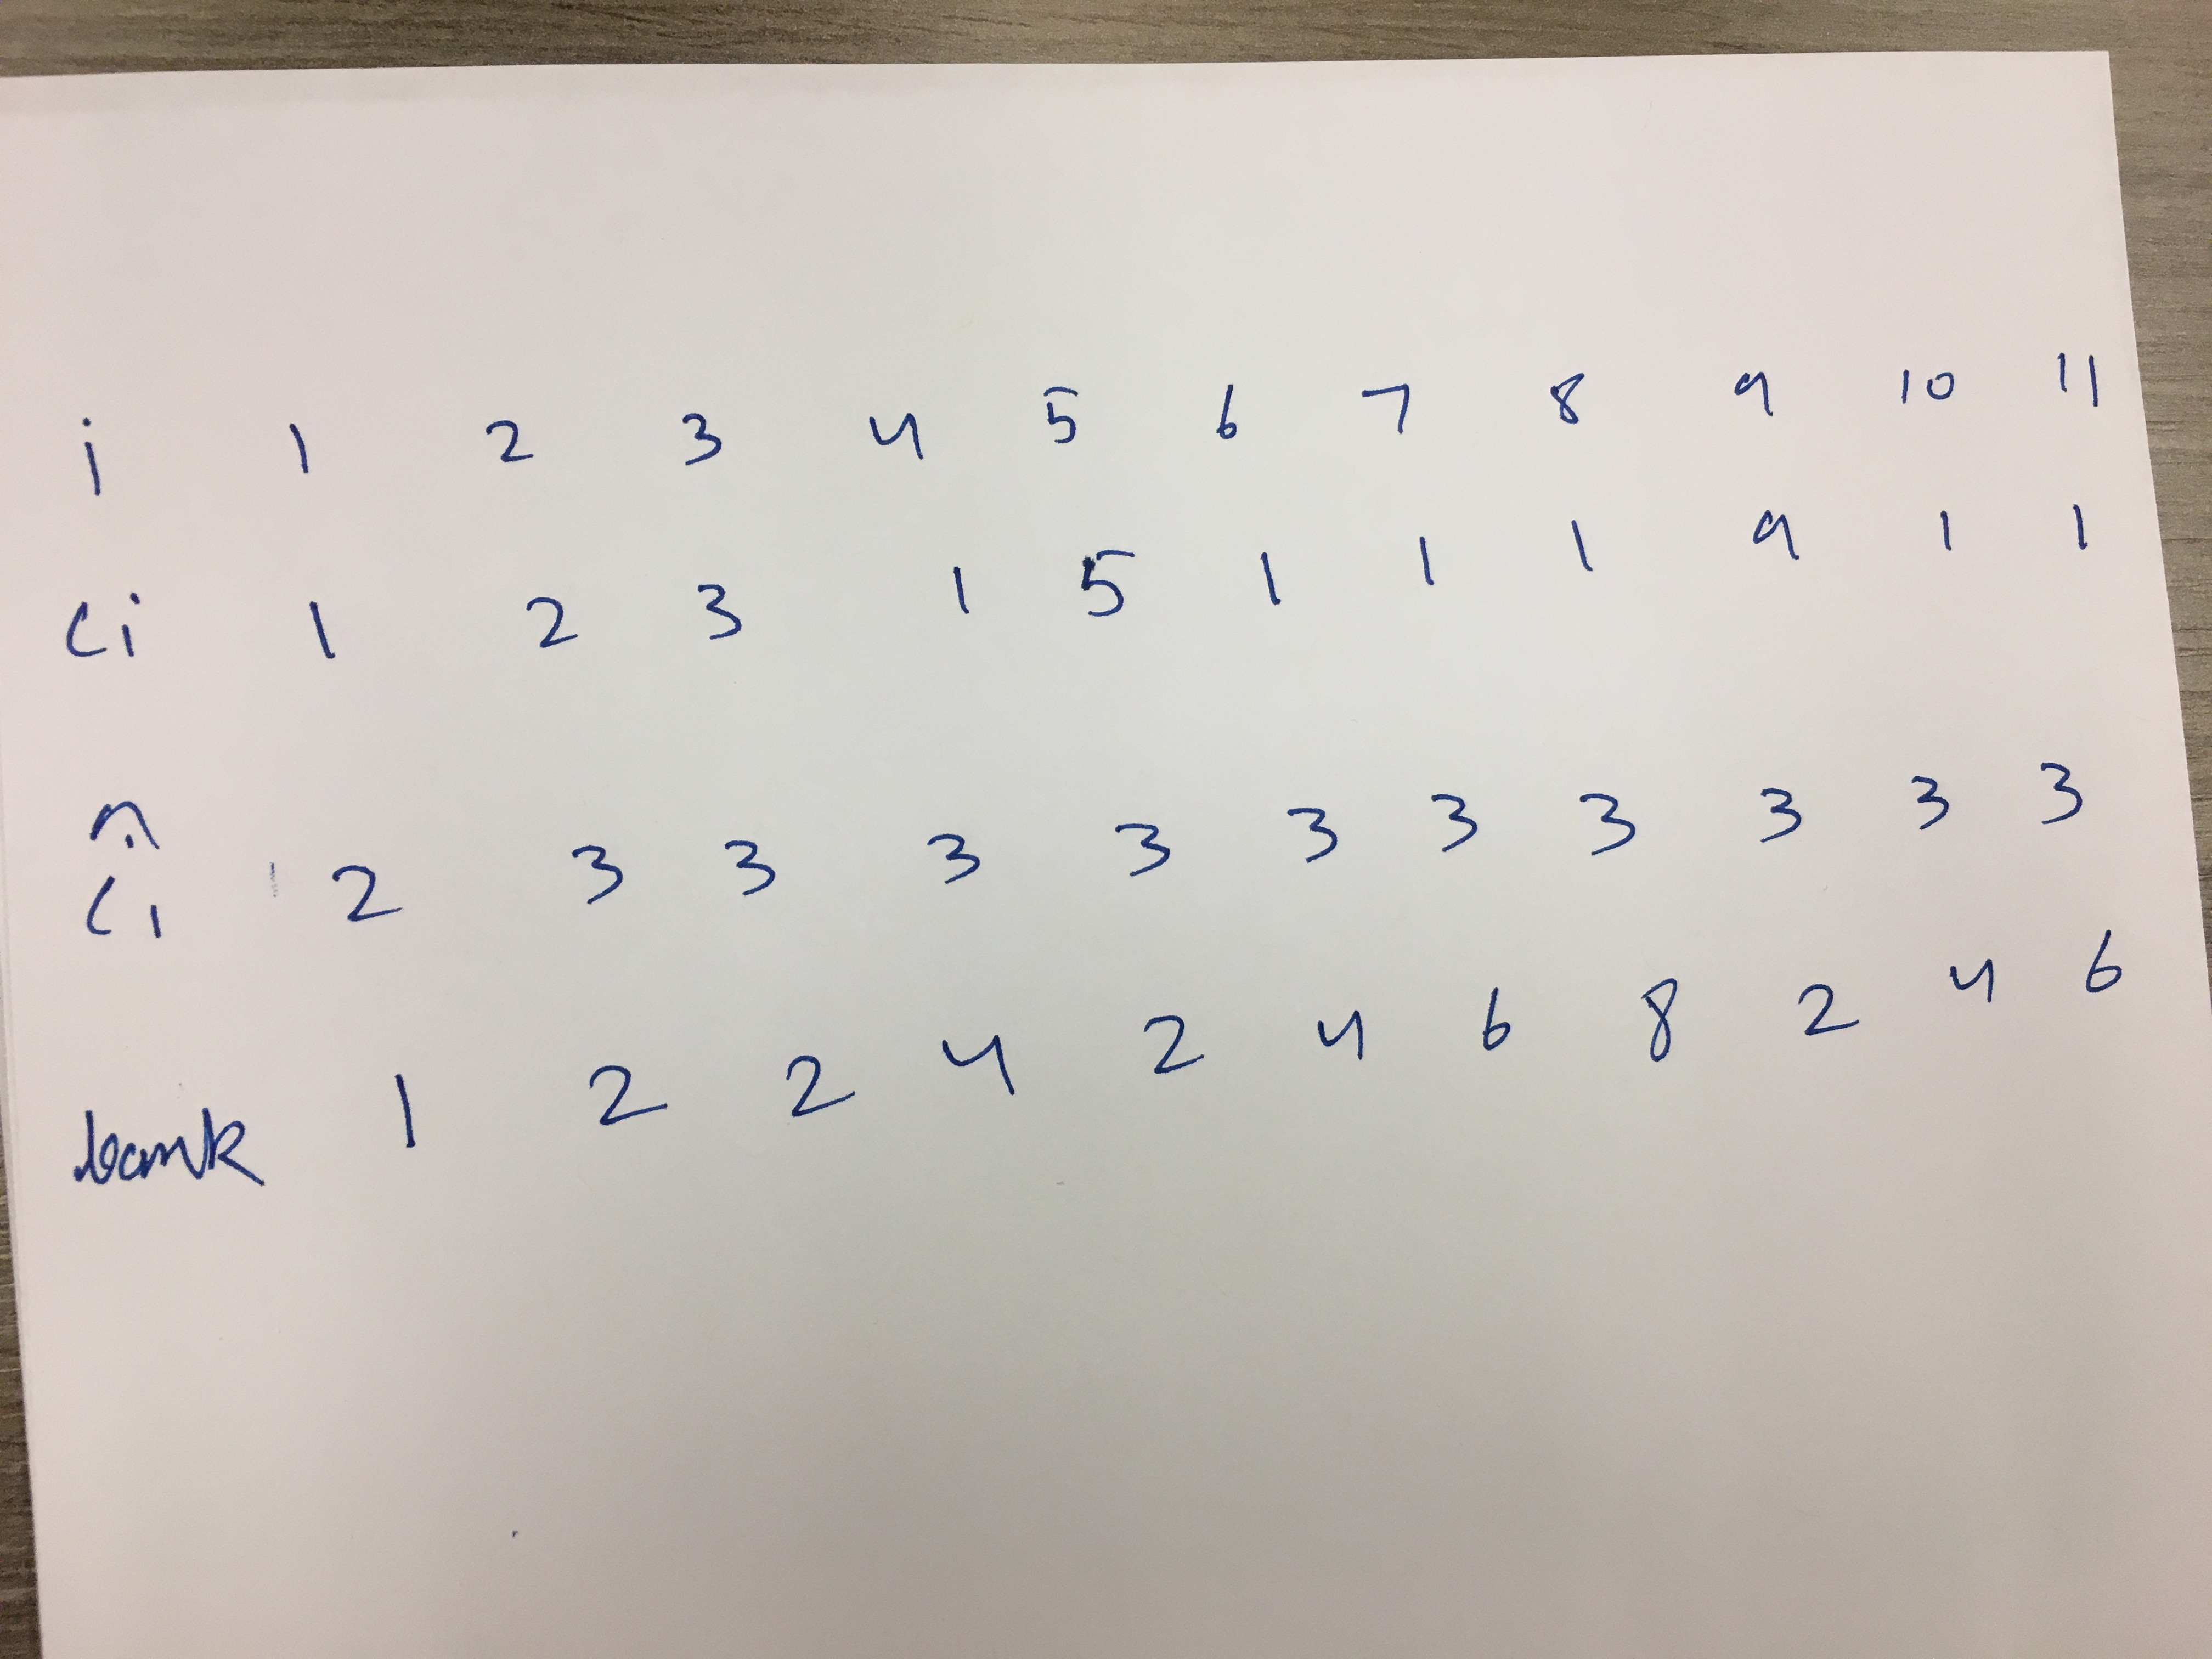 i 1 2 3 4 5 6 7 8 9 10 11
Ci 1 2 3 1 5 1 1 1 9 1 1
Ĉi 2 3 3 3 3 3 3 3 3 3 3
bank 1 2 2 4 2 4 6 8 2 4 6